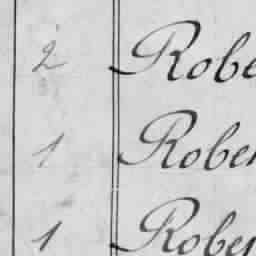 2 Robe
1 Rober
1 Rober